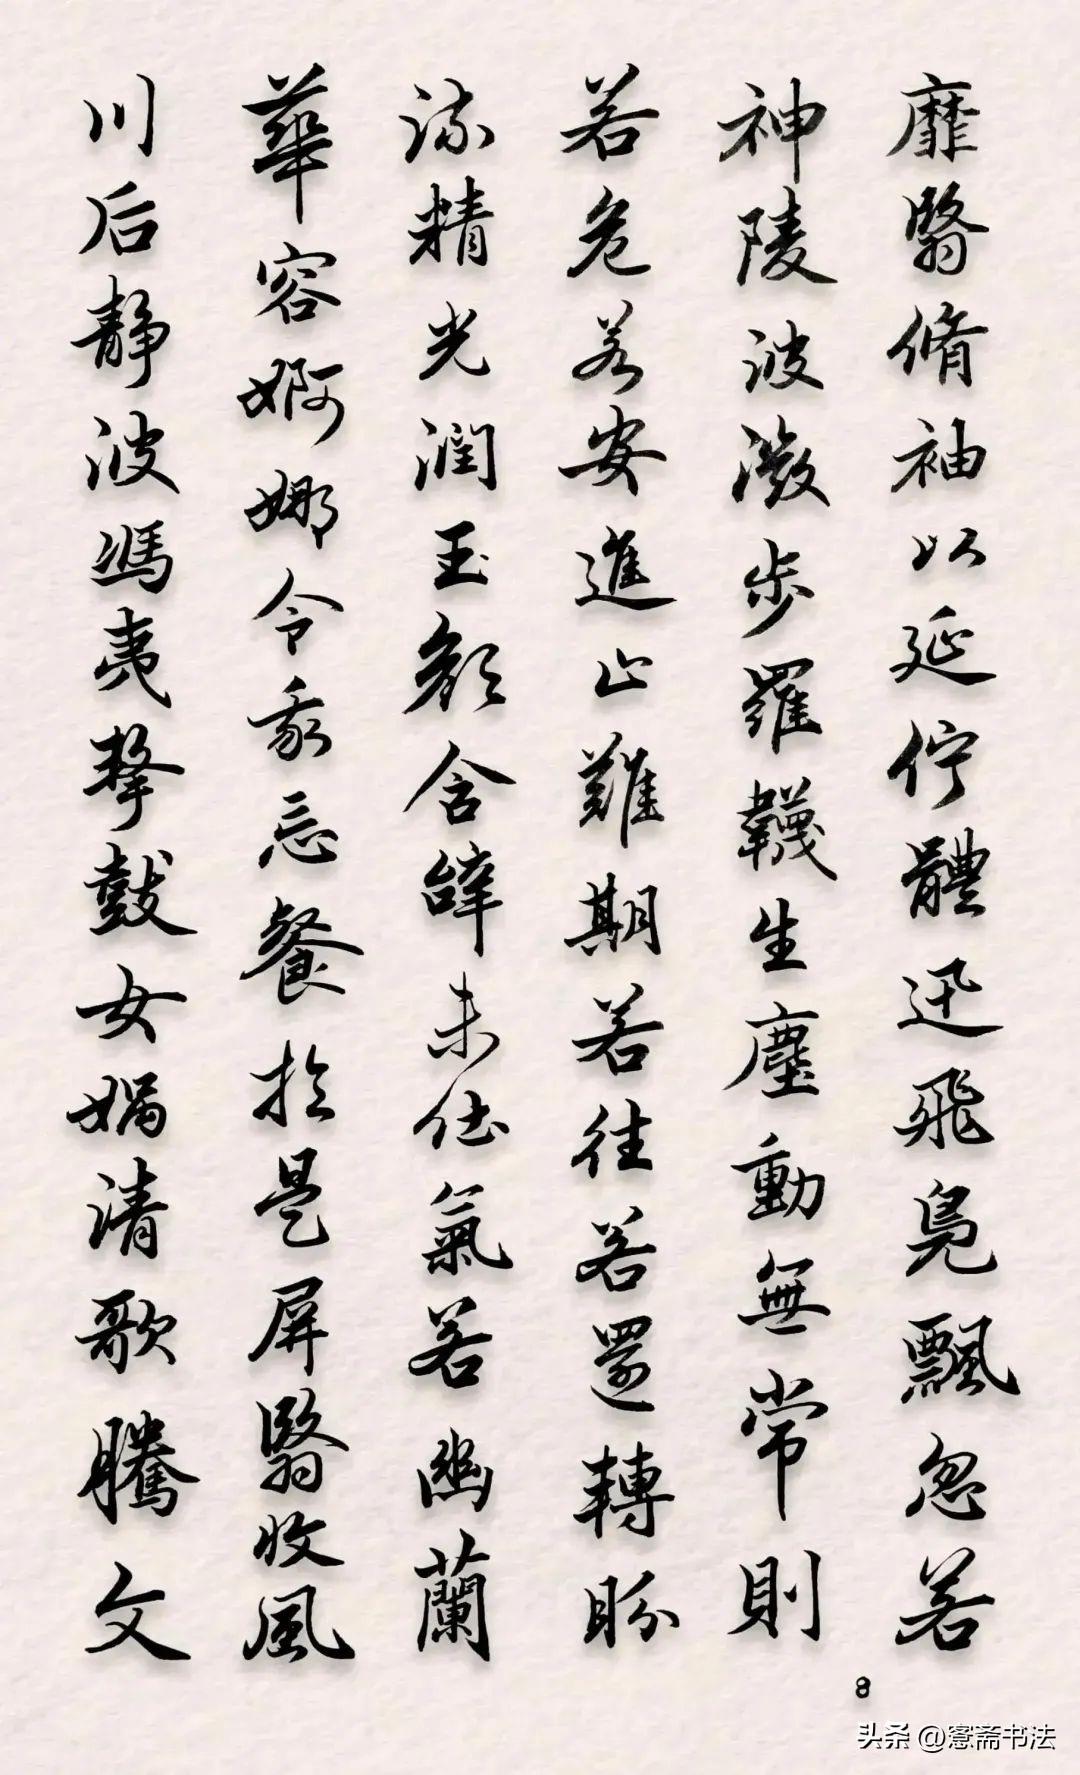 靡翳脩袖以延佇體迅飛鳧飄忽若
神陵波微步羅韈生塵動無常則
若危若安進止難期若往若還轉盼
流精光潤玉顏含辭未吐氣若幽蘭
華容婀娜令我忘餐於是屏翳收風
川后靜波馮夷擊鼓女媧清歌騰文
8
头条 @窸斋书法